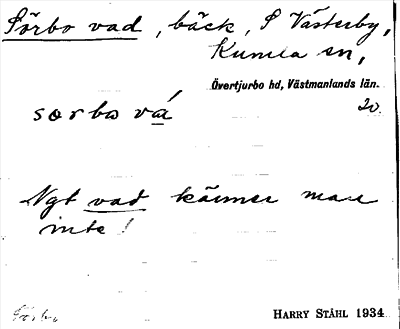 Sörbo vad, bäck, S Västerby,
Kumla sn,
Övertjurbo hd, Västmanlands län.
20.
sœrbo vá
Ngt vad känner man
inte!
HARRY STÅHL 1934